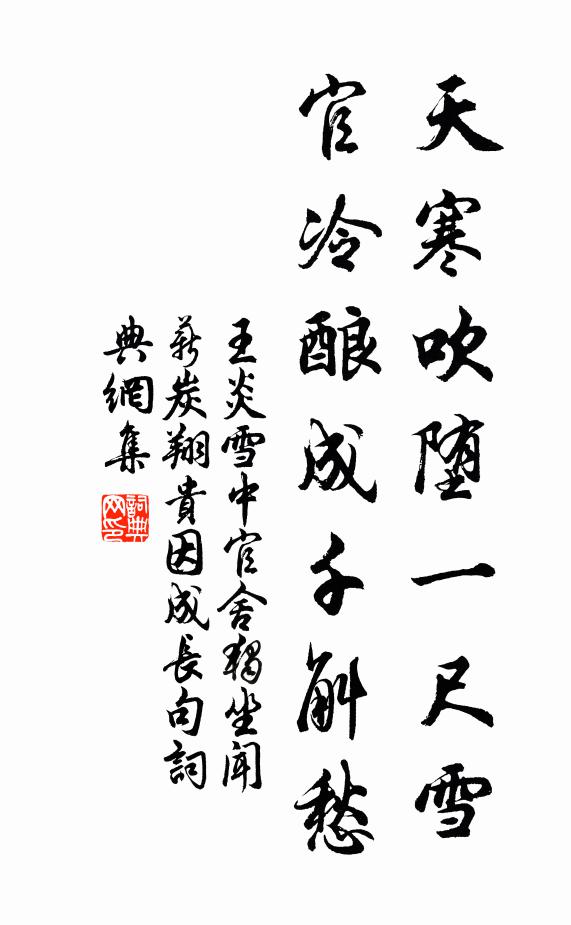 天寒吹堕一尺雪
官冷酿成千斛愁
王炎雪中官舍独坐闻
薪炭翔貴因成長句詞
典網集
詞典网印